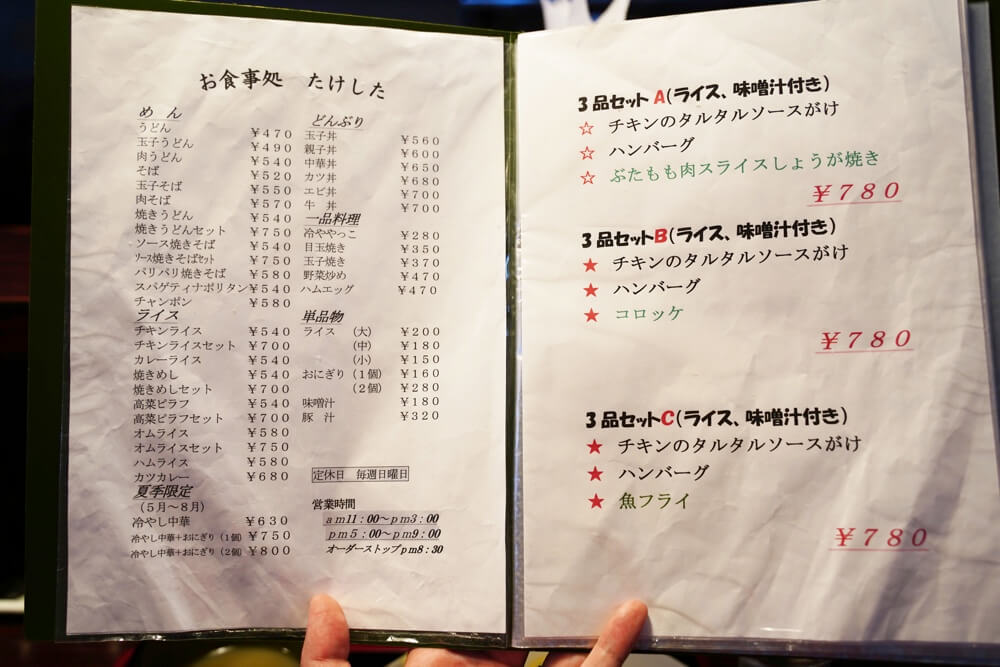 お食事処　たけした
めん
うどん ￥470
玉子うどん ￥490
肉うどん ￥540
そば ￥520
玉子そば ￥550
肉そば ￥570
焼きうどん ￥540
焼きうどんセット ￥750
ソース焼きそば ￥540
ソース焼きそばセット ￥750
パリパリ焼きそば ￥580
スパゲティナポリタン ￥540
チャンポン ￥580
ライス
チキンライス ￥540
チキンライスセット ￥700
カレーライス ￥540
焼きめし ￥540
焼きめしセット ￥700
高菜ピラフ ￥540
高菜ピラフセット ￥700
オムライス ￥580
オムライスセット ￥750
ハムライス ￥580
カツカレー ￥680
夏季限定
（5月～8月）
冷やし中華 ￥630
冷やし中華+おにぎり（1個） ￥750
冷やし中華+おにぎり（2個） ￥800
どんぶり
玉子丼 ￥560
親子丼 ￥600
中華丼 ￥650
カツ丼 ￥680
エビ丼 ￥700
牛　丼 ￥700
一品料理
冷ややっこ ￥280
目玉焼き ￥350
玉子焼き ￥370
野菜炒め ￥470
ハムエッグ ￥470
単品物
ライス　（大） ￥200
（中） ￥180
（小） ￥150
おにぎり（1個） ￥160
（2個） ￥280
味噌汁 ￥180
豚　汁 ￥320
定休日　毎週日曜日
営業時間
am11：00～pm3：00
pm5：00～pm9：00
オーダーストップpm8：30
3品セットA(ライス、味噌汁付き)
☆ チキンのタルタルソースがけ
☆ ハンバーグ
☆ ぶたもも肉スライスしょうが焼き
￥780
3品セットB(ライス、味噌汁付き)
★ チキンのタルタルソースがけ
★ ハンバーグ
★ コロッケ
￥780
3品セットC(ライス、味噌汁付き)
★ チキンのタルタルソースがけ
★ ハンバーグ
★ 魚フライ
￥780